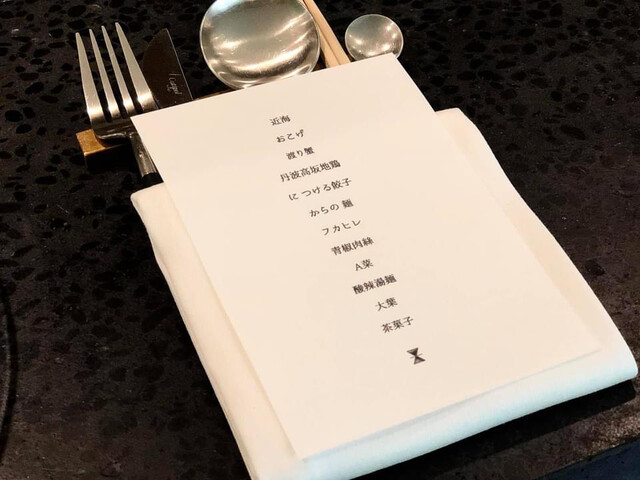 近海
おこげ
渡り蟹
丹波高坂地鶏
に つける餃子
からの 麺
フカヒレ
青椒肉絲
A菜
酸辣湯麺
大葉
茶菓子